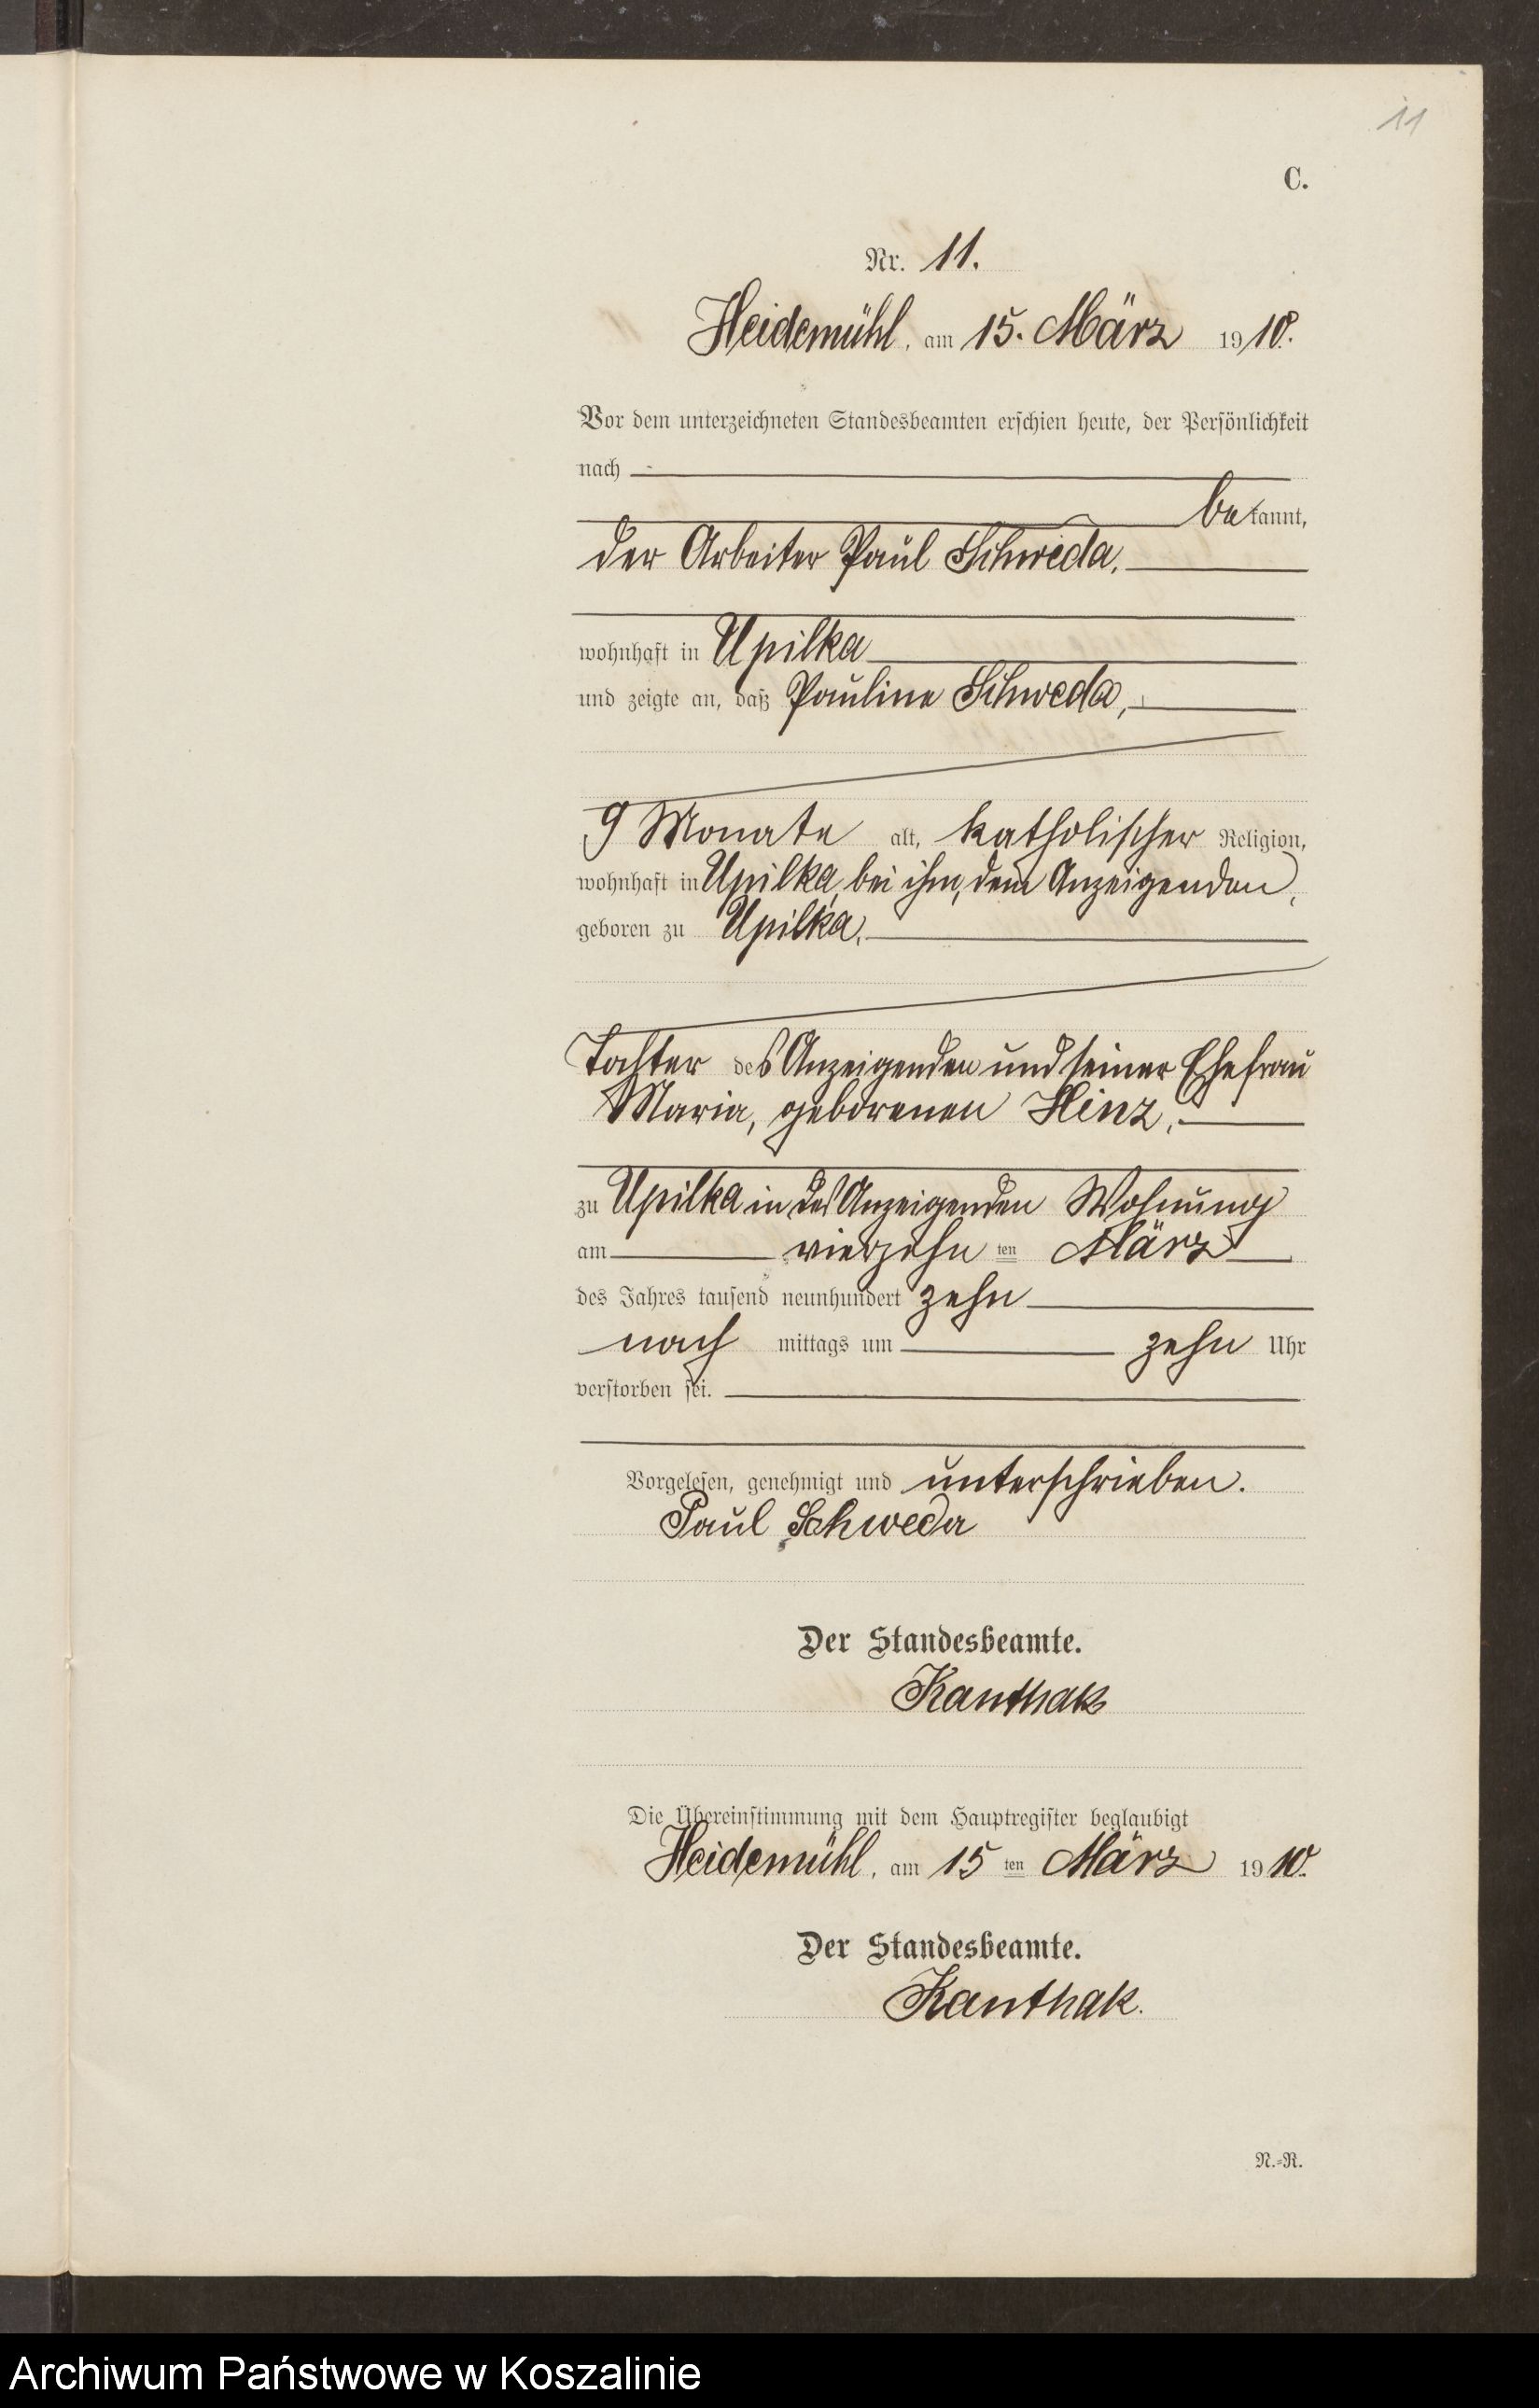 11
C.
Nr. 11.
Heidemühl, am 15. März 1910.
Vor dem unterzeichneten Standesbeamten erschien heute, der Persönlichkeit
nach
bekannt,
der Arbeiter Paul Schweda,
wohnhaft in Upilka
und zeigte an, daß Pauline Schweda,
9 Monate alt, katholischer Religion,
wohnhaft in Upilka, bei ihm, dem Anzeigenden,
geboren zu Upilka,
Tochter des Anzeigenden und seiner Ehefrau
Maria, geborenen Hinz,
zu Upilka in des Anzeigenden Wohnung
am vierzehn ten März
des Jahres tausend neunhundert zehn
nach mittags um zehn Uhr
verstorben sei.
Vorgelesen, genehmigt und unterschrieben.
Paul Schweda
Der Standesbeamte.
Kanthak
Die Übereinstimmung mit dem Hauptregister beglaubigt
Heidemühl, am 15 ten März 1910.
Der Standesbeamte.
Kanthak.
N.-R.
Archiwum Państwowe w Koszalinie